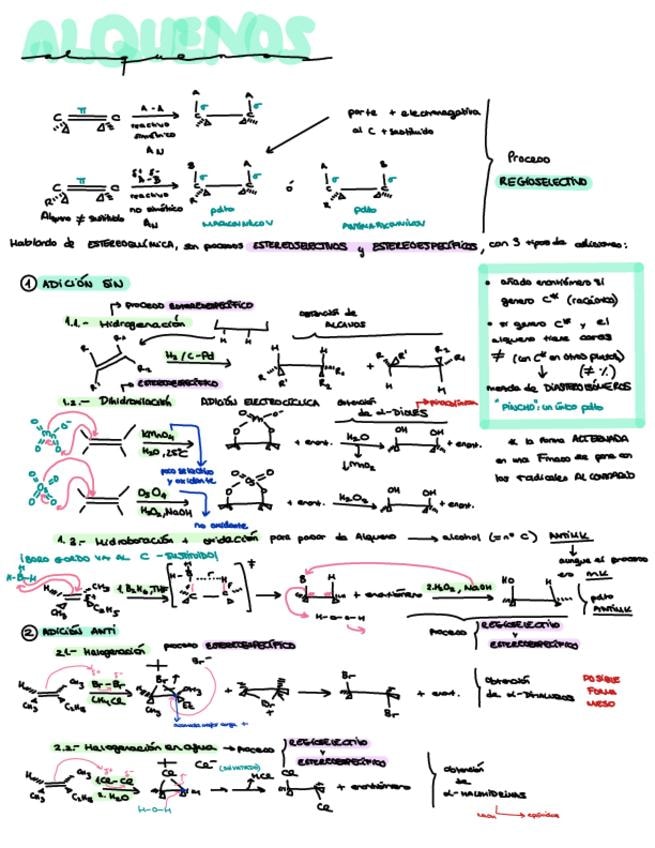 ALQUENOS
alquenos
A-A
reactivo
simétrico
AN
parte + electronegativa
al C + sustituido
Proceso
REGIOSELECTIVO
A-B
reactivo
no simétrico
AN
Alqueno ≠ sustituido
ó
pdto
MARKOVNIKOV
pdto
ANTIMARKOVNIKOV
Hablando de ESTEREOQUÍMICA, son procesos ESTEREOSELECTIVOS y ESTEREOESPECÍFICOS, con 3 tipos de adiciones:
① ADICIÓN SIN
proceso ESTEREOESPECÍFICO
1.1.- Hidrogenación
obtención de
ALCANOS
H2 / C-Pd
ESTEREOESPECÍFICO
• añado enantiómero si
genero C* (racémico)
• si genero C* y el
alqueno tiene caras
≠ (un C* en otro punto)
(≠ %)
mezcla de DIASTEREÓMEROS
"PINCHO": un único pdto
1.2.- Dihidroxilación ADICIÓN ELECTROCÍCLICA
obtención
de α-DIOLES
KMnO4
H2O, 25ºC
+ enant.
H2O
↓MnO2
+ enant.
poco selectivo
y oxidante
OsO4
H2O2, NaOH
+ enant.
H2O2
+ enant.
no oxidante
* la forma ALTERNADA
los radicales AL CONTRARIO
1.3.- Hidroboración + oxidación para pasar de Alqueno → alcohol (= nº C) ANTIMK
aunque el proceso
es MK
¡BORO GORDO VA AL C - SUSTITUIDO!
H-B-H
1. B2H6, THF
+ enantiómero
2. H2O2, NaOH
pdto
ANTIMK
proceso
REGIOSELECTIVO
y
ESTEREOESPECÍFICO
② ADICIÓN ANTI
2.1.- Halogenación proceso ESTEREOESPECÍFICO
Br-Br
Br⁻
+ enant.
obtención
de α-DIHALUROS
POSIBLE
FORMA
MESO
2.2.- Halogenación en agua → proceso
REGIOSELECTIVO
y
ESTEREOESPECÍFICO
1. Cl-Cl
2. H2O
Cl⁻
HCl
+ enantiómero
H-O-H
obtención
de
α-HALOHIDRINAS
epóxidos